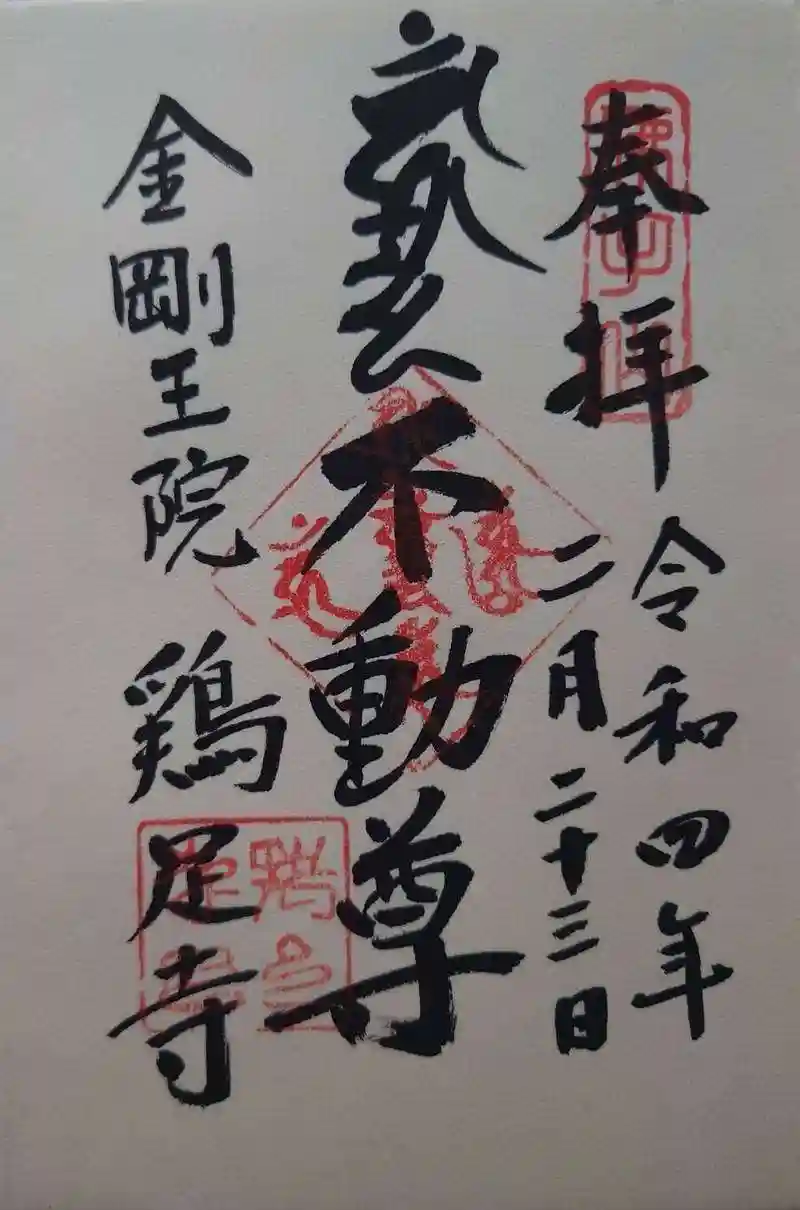 奉拝
令和四年
二月二十三日
不動尊
金剛王院 鶏足寺